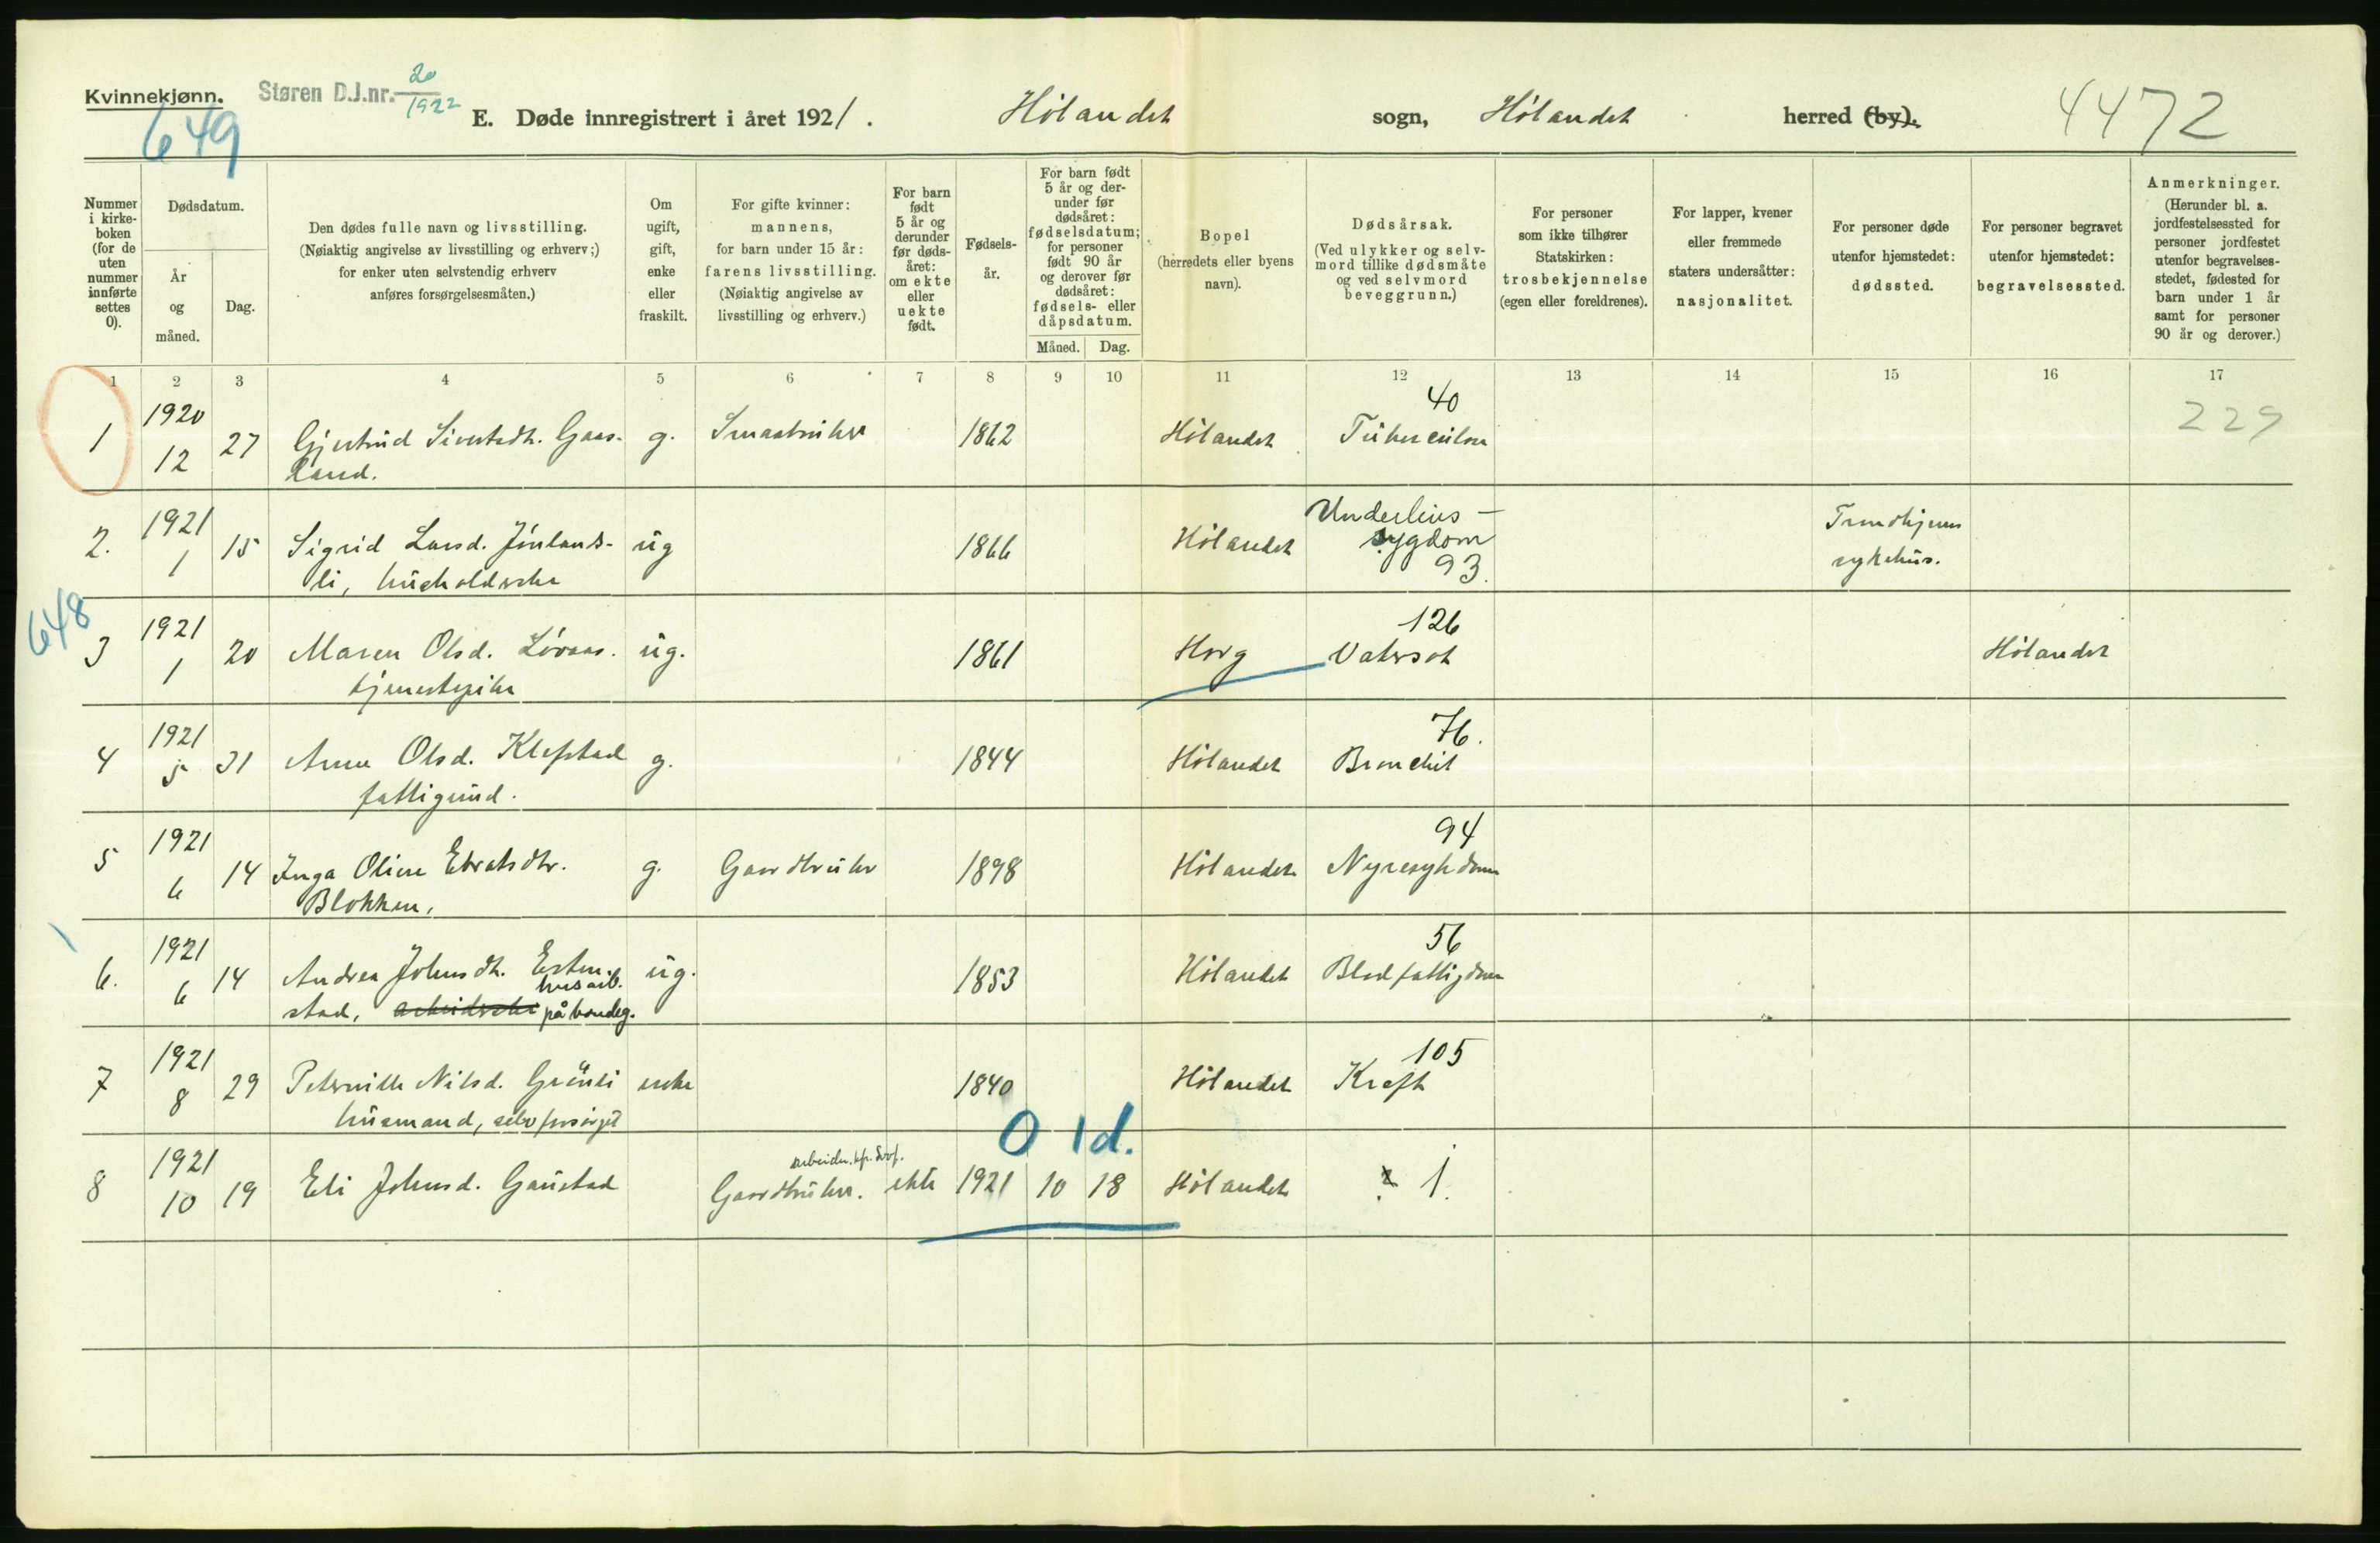 Kvinnekjønn. Støren D.J.nr. 20/1922
649
E. Døde innregistrert i året 1921. Hølandet sogn, Hølandet herred (by). 4472
Nummer i kirke-boken (for de uten nummer innførte settes 0).
Dødsdatum.
År og måned.
Dag.
Den dødes fulle navn og livsstilling.
(Nøiaktig angivelse av livsstilling og erhverv;)
for enker uten selvstendig erhverv
anføres forsørgelsesmåten.)
Om ugift, gift, enke eller fraskilt.
For gifte kvinner:
mannens,
for barn under 15 år:
farens livsstilling.
(Nøiaktig angivelse av
livsstilling og erhverv.)
For barn født 5 år og derunder før døds-året: om ekte eller uekte født.
Fødsels-år.
For barn født 5 år og der-under før dødsåret: fødselsdatum; for personer født 90 år og derover før dødsåret: fødsels- eller dåpsdatum.
Måned. Dag.
Bopel
(herredets eller byens
navn).
Dødsårsak.
(Ved ulykker og selv-
mord tillike dødsmåte
og ved selvmord
beveggrunn.)
For personer
som ikke tilhører
Statskirken:
trosbekjennelse
(egen eller foreldrenes).
For lapper, kvener
eller fremmede
staters undersåtter:
nasjonalitet.
For personer døde
utenfor hjemstedet:
dødssted.
For personer begravet
utenfor hjemstedet:
begravelsessted.
Anmerkninger.
(Herunder bl. a.
jordfestelsessted for
personer jordfestet
utenfor begravelses-
stedet, fødested for
barn under 1 år
samt for personer
90 år og derover.)
1 2 3 4 5 6 7 8 9 10 11 12 13 14 15 16 17
1920 40 229
1 12 27 Gjertrud Sivertsdt. Gaas- g. Smaabruker 1862 Hølandet Tuberculose
land.
1921 Underlivs-
2. 1 15 Sigrid Larsd. ug 1866 Hølandet sygdom Trondhjems
li, husholderske 93. sykehus.
648
1921 126
3 1 20 Maren Olsd. Løvaas. ug. 1861 Horg Vatersot Hølandet
tjenestepike
1921 76.
4 5 31 Anne Olsd. Klefstad g. 1844 Hølandet Bronchit
fattigund.
1921 94
5 6 14 Inga Oline Estensdtr. g. Gaardbruker 1898 Hølandet Nyresykdom
Blokken,
1921 56
6. 6 14 Andrea Johnsdt. Esten- ug. 1853 Hølandet Blodfattigdom
husarb.
stad, arbeiderske på bondeg.
1921 105
7 8 29 Peternille Nilsd. Grønli enke 1840 Hølandet Kreft
husmand, selvforsørget
0 1d.
1921 arbeider.
8 10 19 Eli Johnsd. Gaustad Gaardbruker. ekte 1921 10 18 Hølandet ? 1.